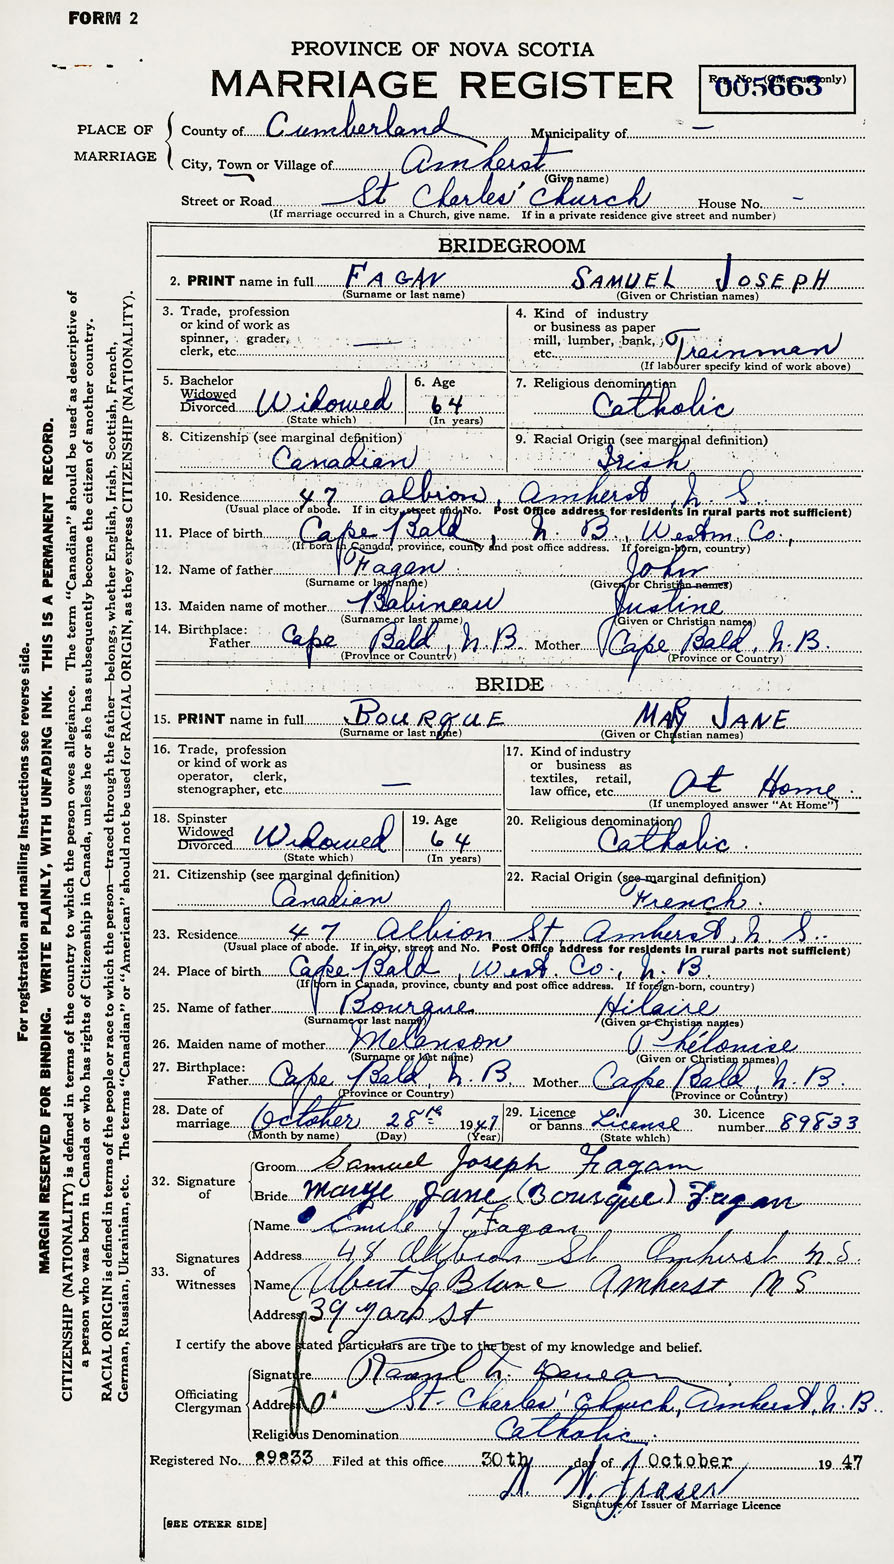 FORM 2
PROVINCE OF NOVA SCOTIA
MARRIAGE REGISTER
Reg. No. (Office use only)
005663
PLACE OF MARRIAGE
County of Cumberland Municipality of —
City, Town or Village of Amherst
(Give name)
Street or Road St Charles' Church House No. -
(If marriage occurred in a Church, give name. If in a private residence give street and number)
BRIDEGROOM
2. PRINT name in full FAGAN SAMUEL JOSEPH
(Surname or last name) (Given or Christian names)
3. Trade, profession
or kind of work as
spinner, grader,
clerk, etc. —
4. Kind of industry
or business as paper
mill, lumber, bank,
etc. Trainman
(If labourer specify kind of work above)
5. Bachelor
Widowed
Divorced Widowed
(State which)
6. Age
64
(In years)
7. Religious denomination
Catholic
8. Citizenship (see marginal definition)
Canadian
9. Racial Origin (see marginal definition)
Irish
10. Residence 47 Albion, Amherst, N. S.
(Usual place of abode. If in city, street and No. Post Office address for residents in rural parts not sufficient)
11. Place of birth Cape Bald, N. B., Westm. Co.,
(If born in Canada, province, county and post office address. If foreign-born, country)
12. Name of father Fagan John
(Surname or last name) (Given or Christian names)
13. Maiden name of mother Babineau Justine
(Surname or last name) (Given or Christian names)
14. Birthplace:
Father Cape Bald, N. B. Mother Cape Bald, N. B.
(Province or Country) (Province or Country)
BRIDE
15. PRINT name in full BOURQUE MARY JANE
(Surname or last name) (Given or Christian names)
16. Trade, profession
or kind of work as
operator, clerk,
stenographer, etc. —
17. Kind of industry
or business as
textiles, retail,
law office, etc. At Home
(If unemployed answer "At Home")
18. Spinster
Widowed
Divorced Widowed
(State which)
19. Age
64
(In years)
20. Religious denomination
Catholic.
21. Citizenship (see marginal definition)
Canadian
22. Racial Origin (see marginal definition)
French.
23. Residence 47 Albion St, Amherst, N. S.
(Usual place of abode. If in city, street and No. Post Office address for residents in rural parts not sufficient)
24. Place of birth Cape Bald, West. Co., N. B.
(If born in Canada, province, county and post office address. If foreign-born, country)
25. Name of father Bourque Hilaire
(Surname or last name) (Given or Christian names)
26. Maiden name of mother Melanson Phélonise
(Surname or last name) (Given or Christian names)
27. Birthplace:
Father Cape Bald, N. B. Mother Cape Bald, N. B.
(Province or Country) (Province or Country)
28. Date of
marriage October 28th 1947
(Month by name) (Day) (Year)
29. Licence
or banns License
(State which)
30. Licence
number 89833
32. Signature
of
Groom Samuel Joseph Fagan
Bride Marye Jane (Bourque) Fagan
33. Signatures
of
Witnesses
Name Emile J Fagan
Address 48 Albion St Amherst N.S.
Name Albert LeBlanc Amherst N S
Address 39 York St
I certify the above stated particulars are true to the best of my knowledge and belief.
Officiating
Clergyman
Signature
Address St. Charles' Church, Amherst, N. B.
Religious Denomination Catholic.
Registered No. 89833 Filed at this office 30th day of October 1947
Fraser
Signature of Issuer of Marriage Licence
[SEE OTHER SIDE]
For registration and mailing instructions see reverse side.
MARGIN RESERVED FOR BINDING. WRITE PLAINLY, WITH UNFADING INK. THIS IS A PERMANENT RECORD.
CITIZENSHIP (NATIONALITY) is defined in terms of the country to which the person owes allegiance. The term "Canadian" should be used as descriptive of
a person who was born in Canada or who has rights of Citizenship in Canada, unless he or she has subsequently become the citizen of another country.
RACIAL ORIGIN is defined in terms of the people or race to which the person—traced through the father—belongs, whether English, Irish, Scottish, French,
German, Russian, Ukrainian, etc. The terms "Canadian" or "American" should not be used for RACIAL ORIGIN, as they express CITIZENSHIP (NATIONALITY).